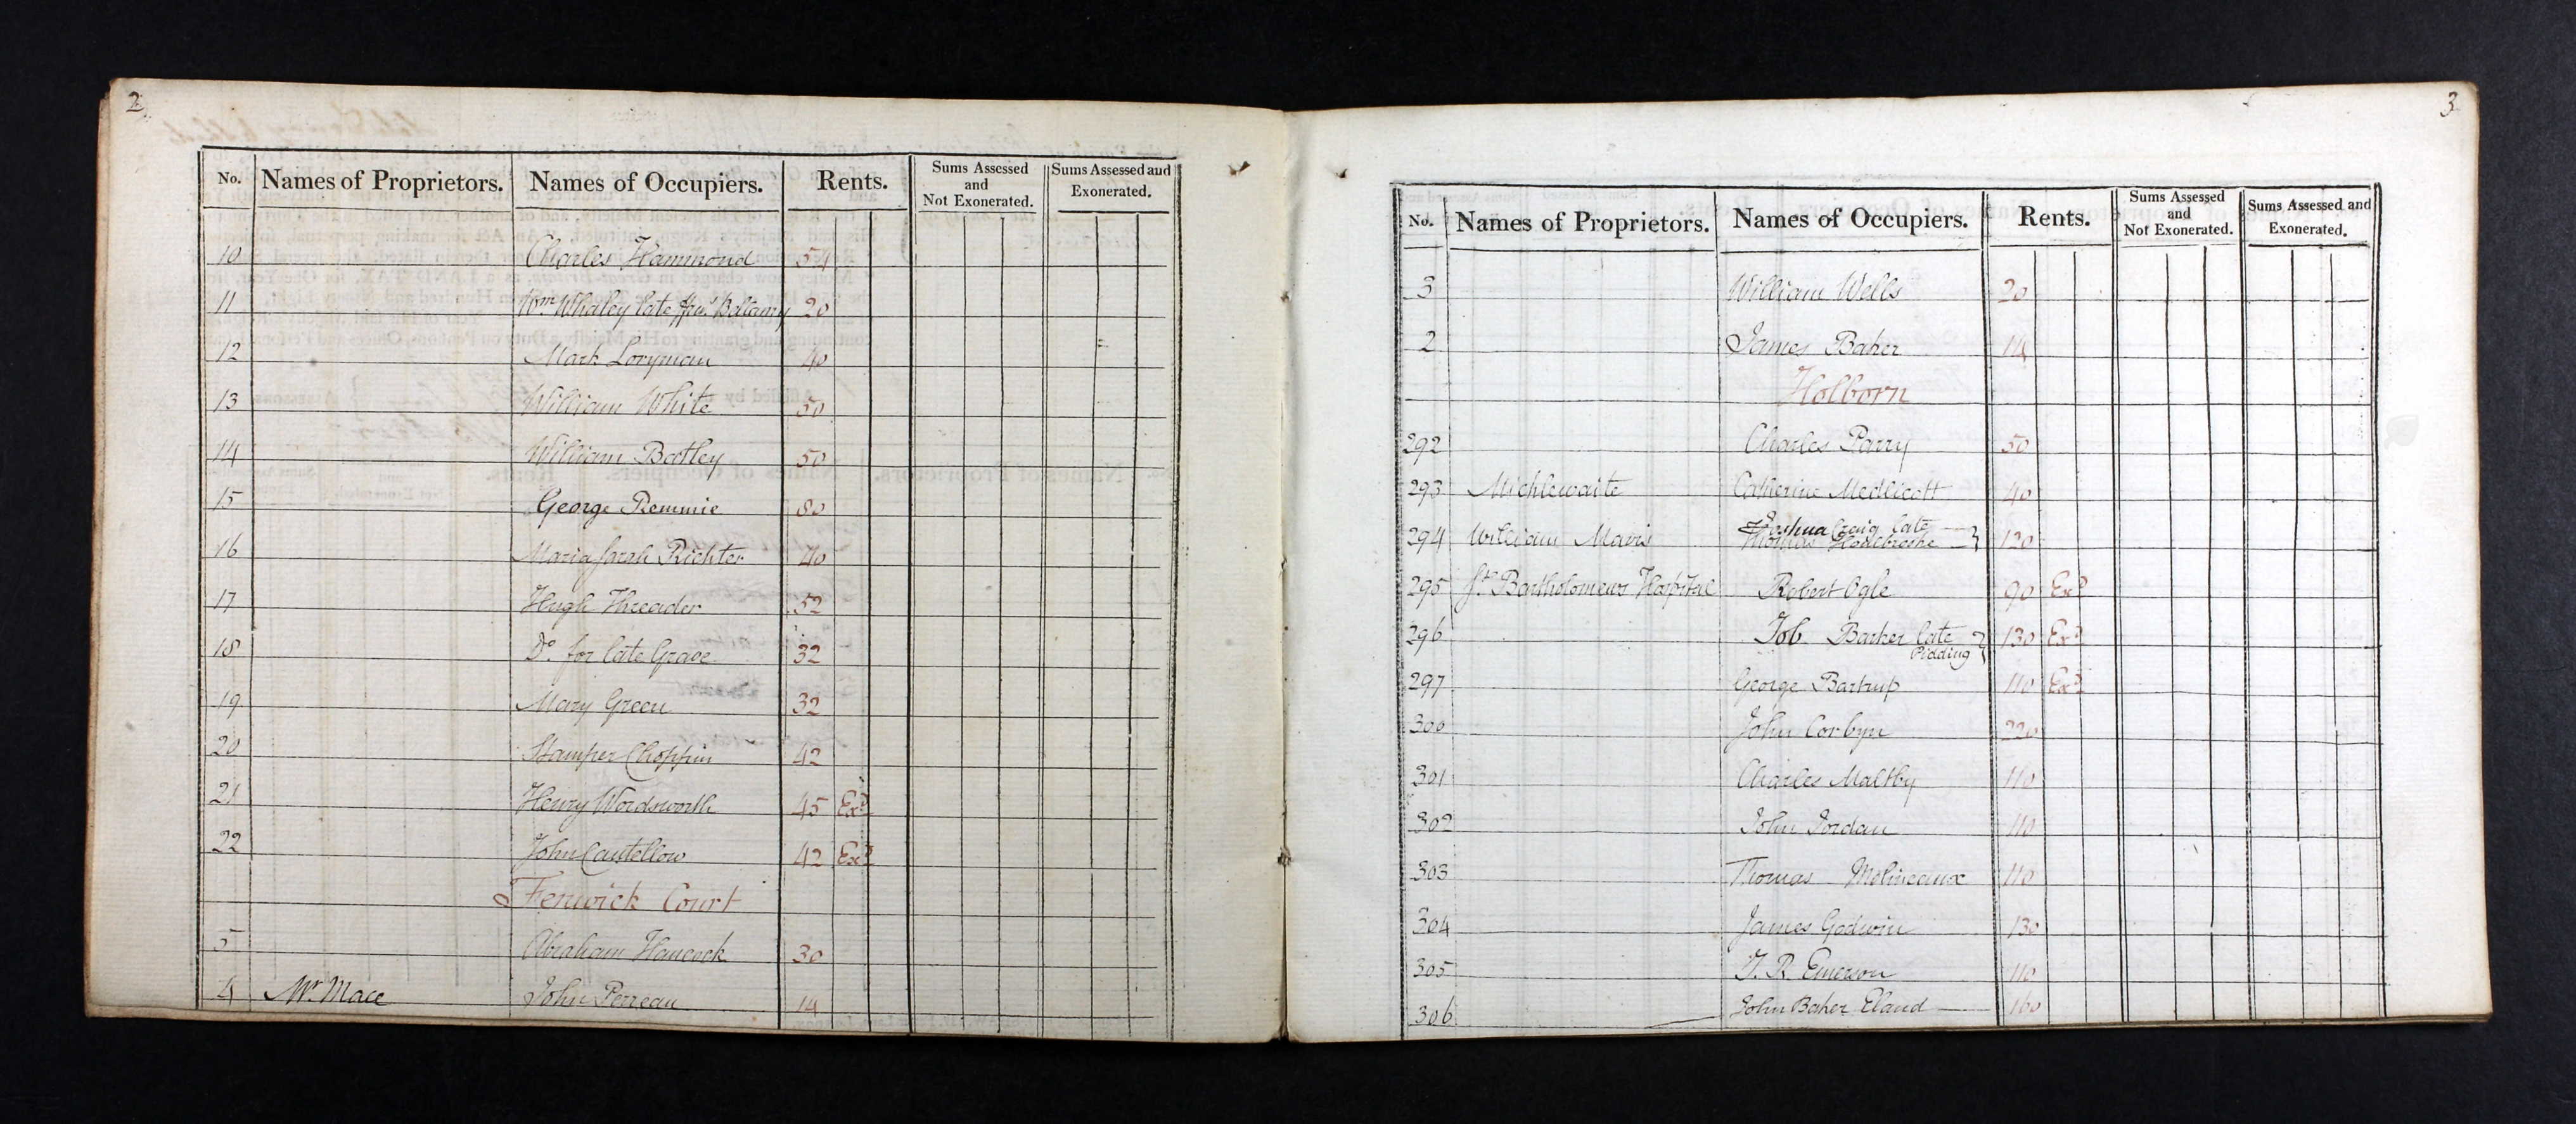 2
No. Names of Proprietors. Names of Occupiers. Rents. Sums Assessed and Not Exonerated. Sums Assessed and Exonerated.
10 Charles Hammond 54
11 Wm Whaley late Bellamy 20
12 Mark Loryman 40
13 William White 50
14 William Batley 50
15 George Remmie 80
16 Maria Sarah Richter 40
17 Hugh Threader 52
18 Do. for late Grave 32
19 Mary Green 32
20 Stamper Choppin 42
21 Henry Wordsworth 45 Exd
22 John Cantellow 42 Exd
Fenwick Court
5 Abraham Hancock 30
4 Mr. Mace John Perreau 14
3
No. Names of Proprietors. Names of Occupiers. Rents. Sums Assessed and Not Exonerated. Sums Assessed and Exonerated.
3 William Wells 20
2 James Baker 14
Holborn
292 Charles Parry 50
293 Michlewaite Catherine Medlicott 40
294 William Mavis Joshua Craig late
Thomas 120
295 St. Bartholomews Hospital Robert Ogle 90 Exd
296 Job Barker late
Pidding 130 Exd
297 George Bartrup 110 Exd
300 John Corbyn 220
301 Charles Maltby 110
302 John Jordan 110
303 Thomas Molineaux 110
304 James Godwin 130
305 T. R. Emerson 110
306 John Baker Eland 160